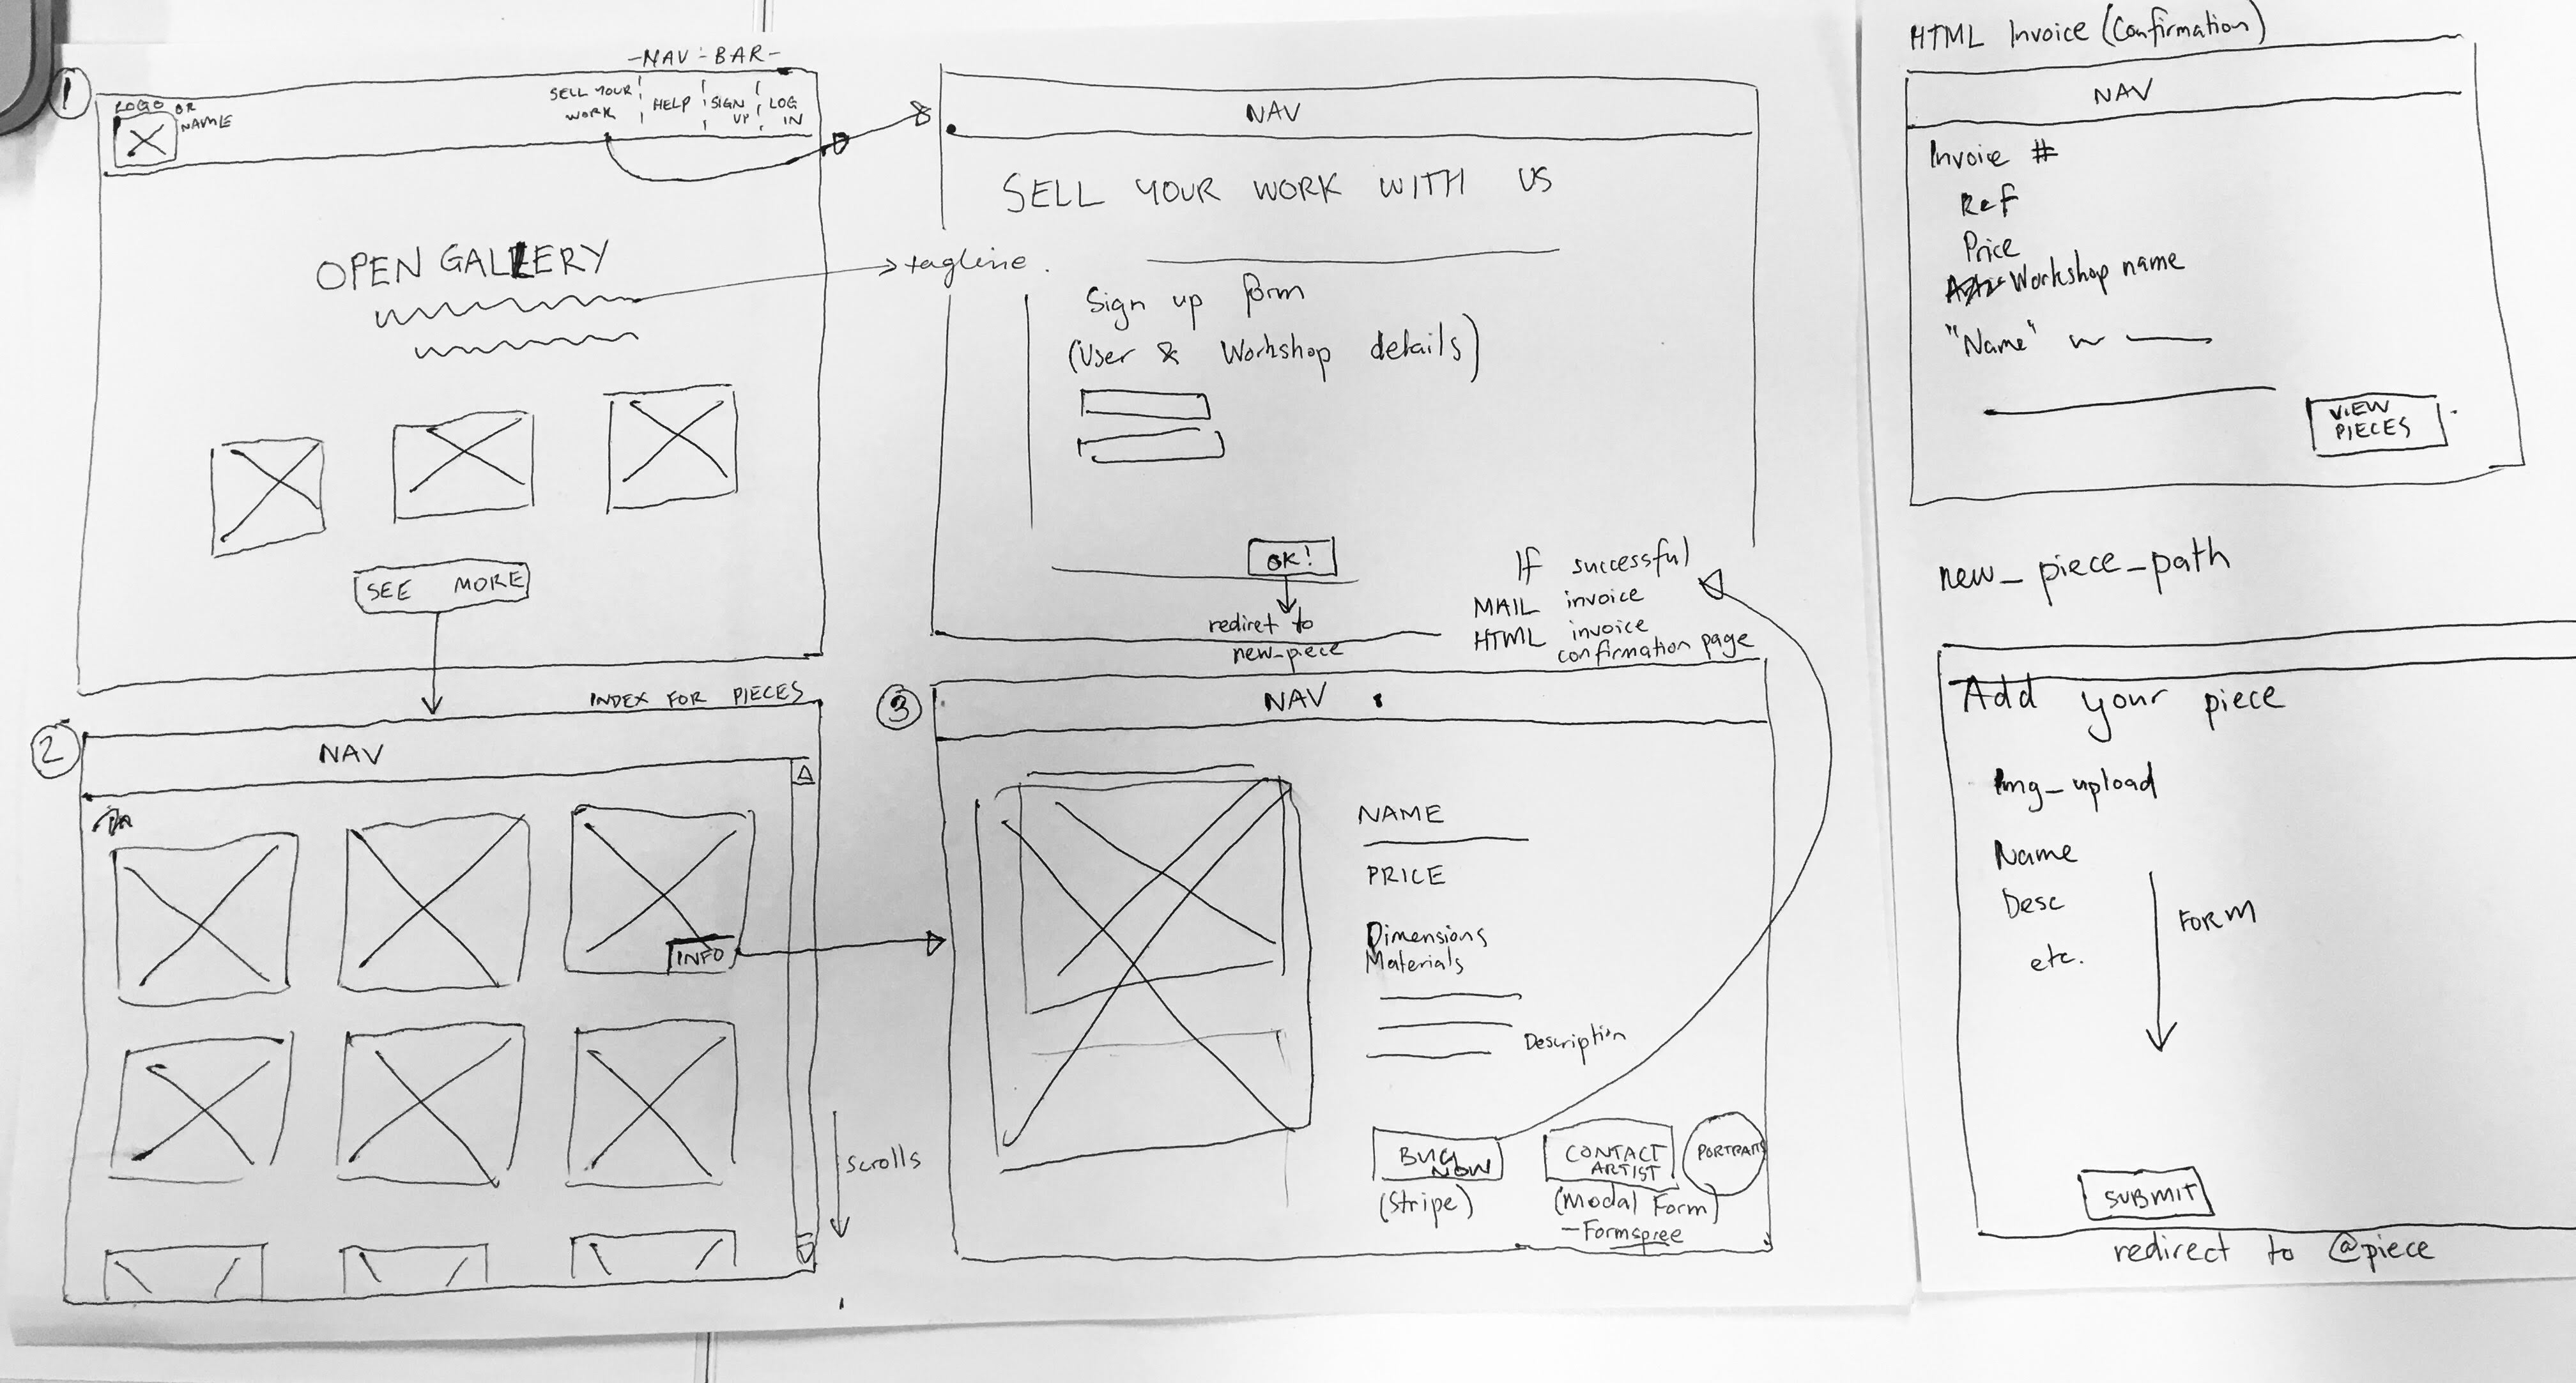 -NAV-BAR-
1
LOGO OR
NAME
SELL YOUR
WORK
HELP
SIGN
UP
LOG
IN
OPEN GALLERY
tagline.
SEE MORE
NAV
SELL YOUR WORK WITH US
Sign up form
(User & Workshop details)
OK!
rediret to
new_piece
If successful
MAIL invoice
HTML invoice
confirmation page
INDEX FOR PIECES
2
NAV
INFO
scrolls
3
NAV
NAME
PRICE
Dimensions
Materials
Description
BUY
NOW
(Stripe)
CONTACT
ARTIST
(Modal Form)
-Formspree
HTML Invoice (Confirmation)
NAV
Invoice #
Ref
Price
Workshop name
"Name"
VIEW
PIECES
new_piece_path
Add your piece
Img_upload
Name
Desc
etc.
FORM
SUBMIT
redirect to @piece